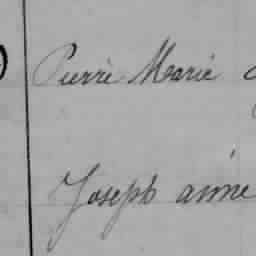 Pierre Marie
Joseph aimé